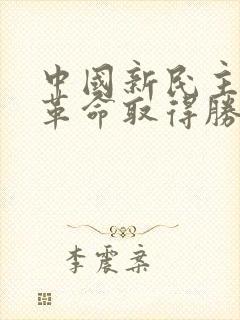 中國新民主
革命取得勝
李震案